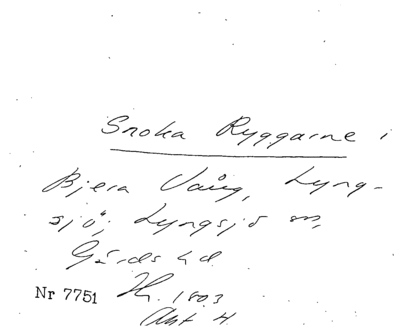 Snoka Ryggarne i
Bjera Vång, Lyng-
sjö; Lyngsjö sn,
Gärds hd
Nr 7751 1803
Akt 4